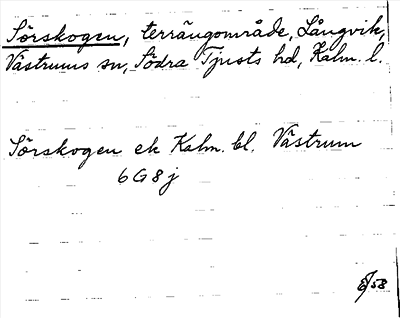 Sörskogen, terrängområde, Långvik,
Västrums sn, Södra Tjusts hd, Kalm. l.
Sörskogen ek Kalm. bl. Västrum
6G8j
/58